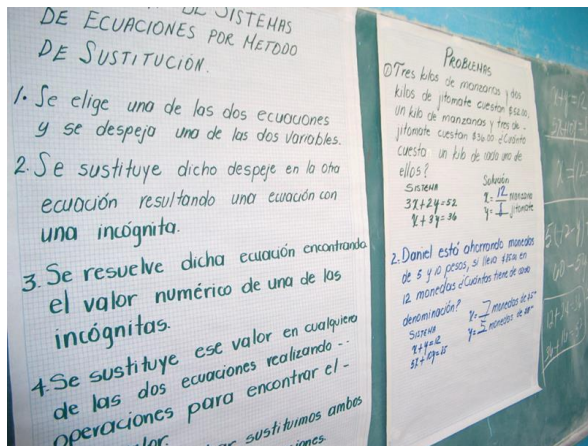 DE SISTEMAS
DE ECUACIONES POR METODO
DE SUSTITUCIÓN.
1. Se elige una de las dos ecuaciones
y se despeja una de las dos variables.
2. Se sustituye dicho despeje en la otra
ecuación resultando una ecuación con
una incógnita.
3. Se resuelve dicha ecuación encontrando
el valor numérico de una de las
incógnitas.
4. Se sustituye ese valor en cualquiera
de las dos ecuaciones realizando - -
operaciones para encontrar el -
sustituimos ambos
PROBLEMAS
① Tres kilos de manzanas y dos
kilos de jitomate cuestan $52.00,
un kilo de manzanas y tres de -
jitomate cuestan $36.00 ¿Cuánto
cuesta un kilo de cada uno de
ellos?
SISTEMA
3x+2y=52
x+3y=36
Solución
x= 12 manzana
y= jitomate
2. Daniel está ahorrando monedas
de 5 y 10 pesos, si lleva en
12 monedas ¿Cuántas tiene de cada
denominación?
SISTEMA
x+y=12
x= 7 monedas de
y= 5 monedas de